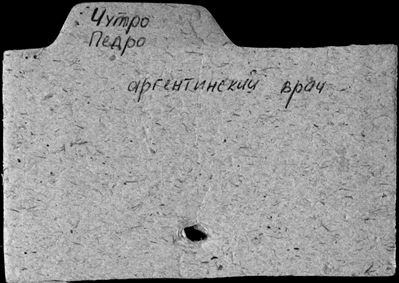 Чутро
Педро
аргентинский врач